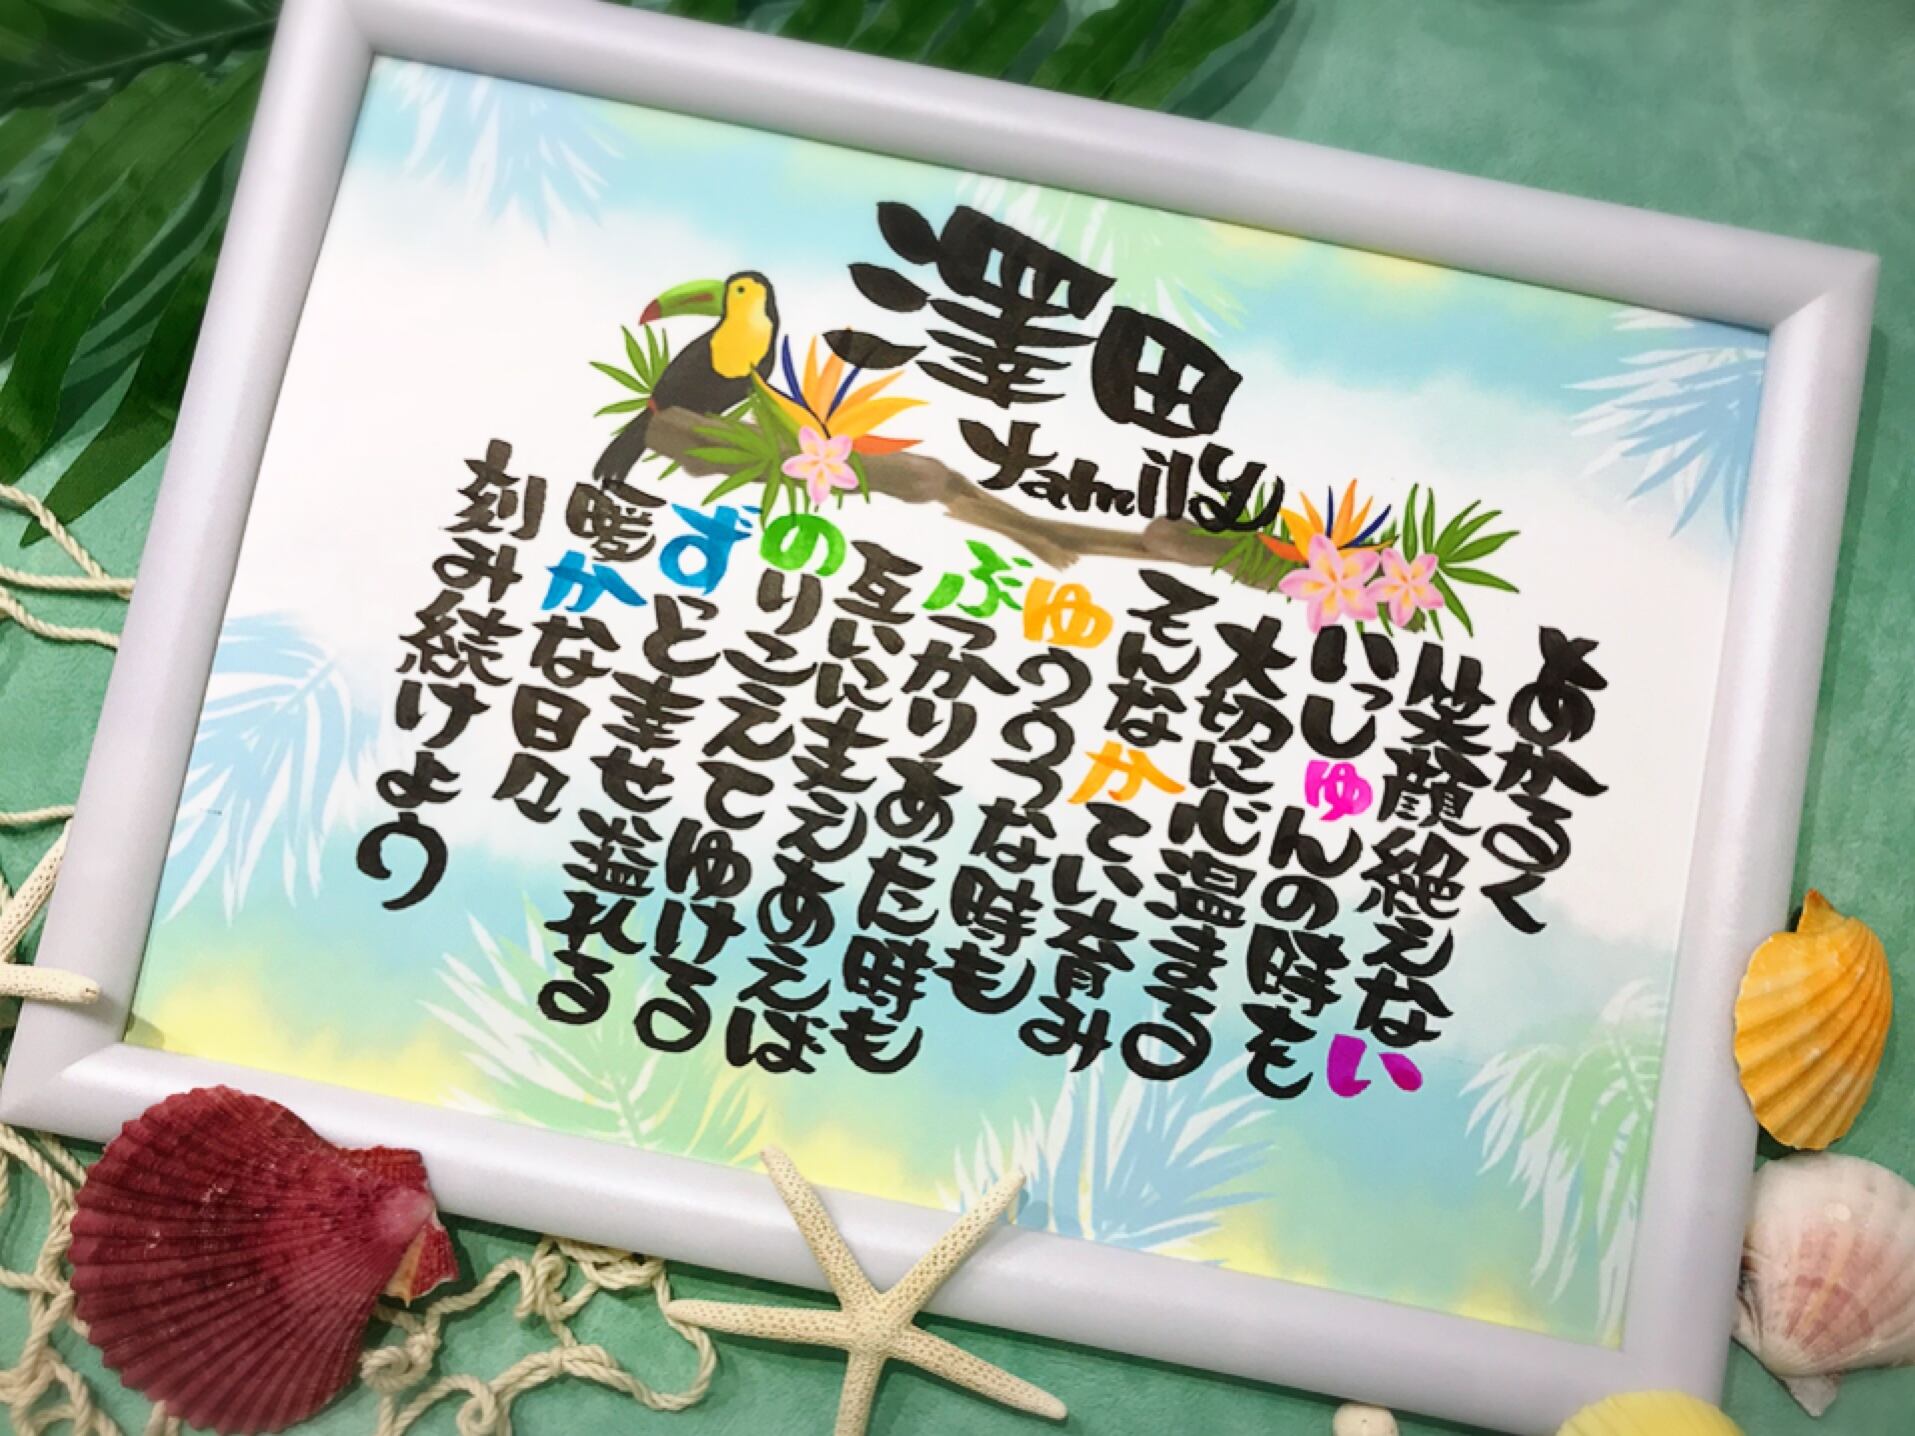 澤田
Family
あかるく
笑顔絶えない
いっしゅんの時も
大切に心温まる
そんなかてい育み
ゆうううつな時も
ぶつかりあた時も
互いに支えあえば
のりこえてゆける
ずっと幸せ溢れる
暖かな日々
刻み続けよう